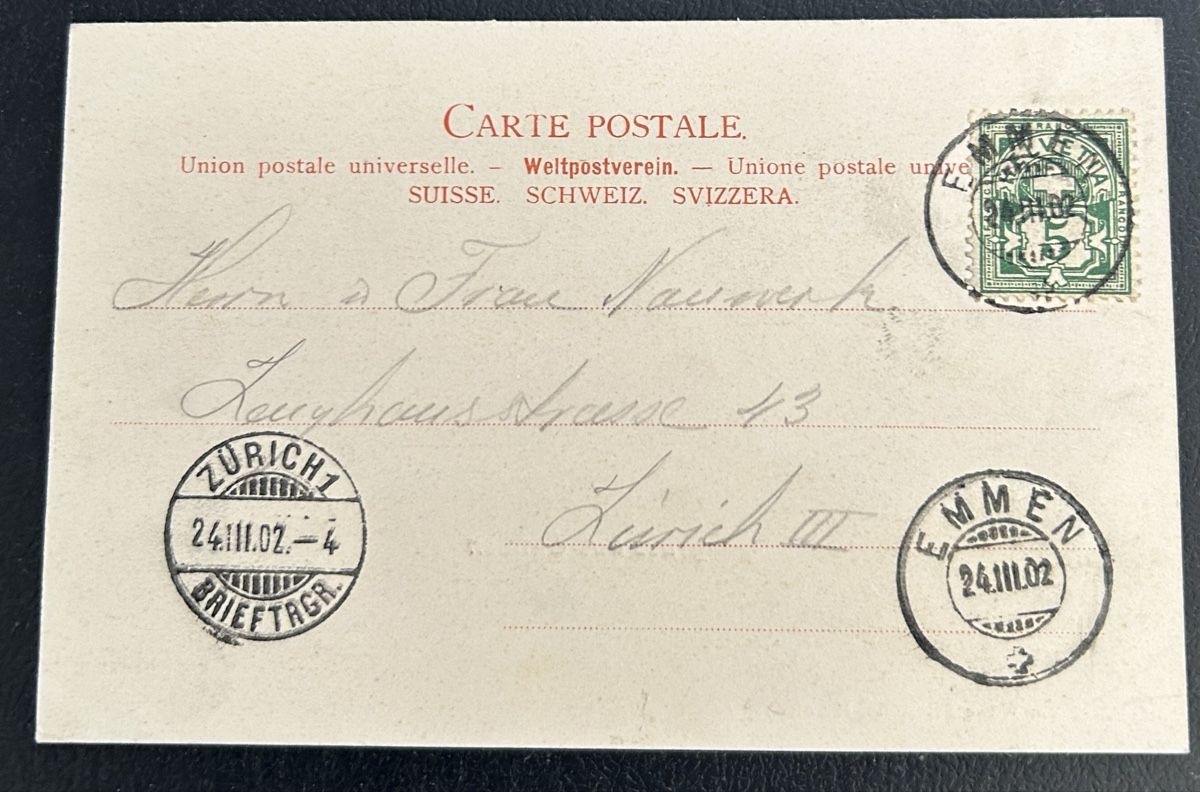 CARTE POSTALE.
Union postale universelle. – Weltpostverein. — Unione postale unive
SUISSE. SCHWEIZ. SVIZZERA.
EMMEN
24.III.02
FRANCO
HELVETIA
FRANCO
5
Herrn u Frau Nauwerk
Zeughausstrasse 13
Zürich III
ZÜRICH 1
24.III.02.–4
BRIEFTRGR.
EMMEN
24.III.02